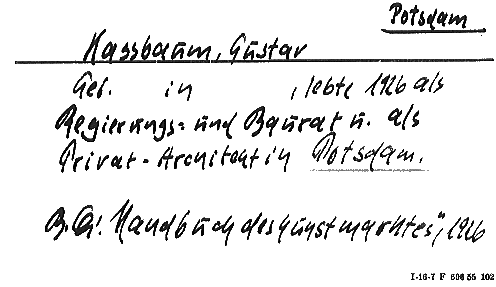 Potsdam
Kassbaum, Gustav
Geb. in , lebte 1926 als
Regierungs- und Baurat u. als
Privat-Architekt in Potsdam.
B. G. "Handbuch des Kunstmarktes", 1926
I-16-7 F 506 55 102